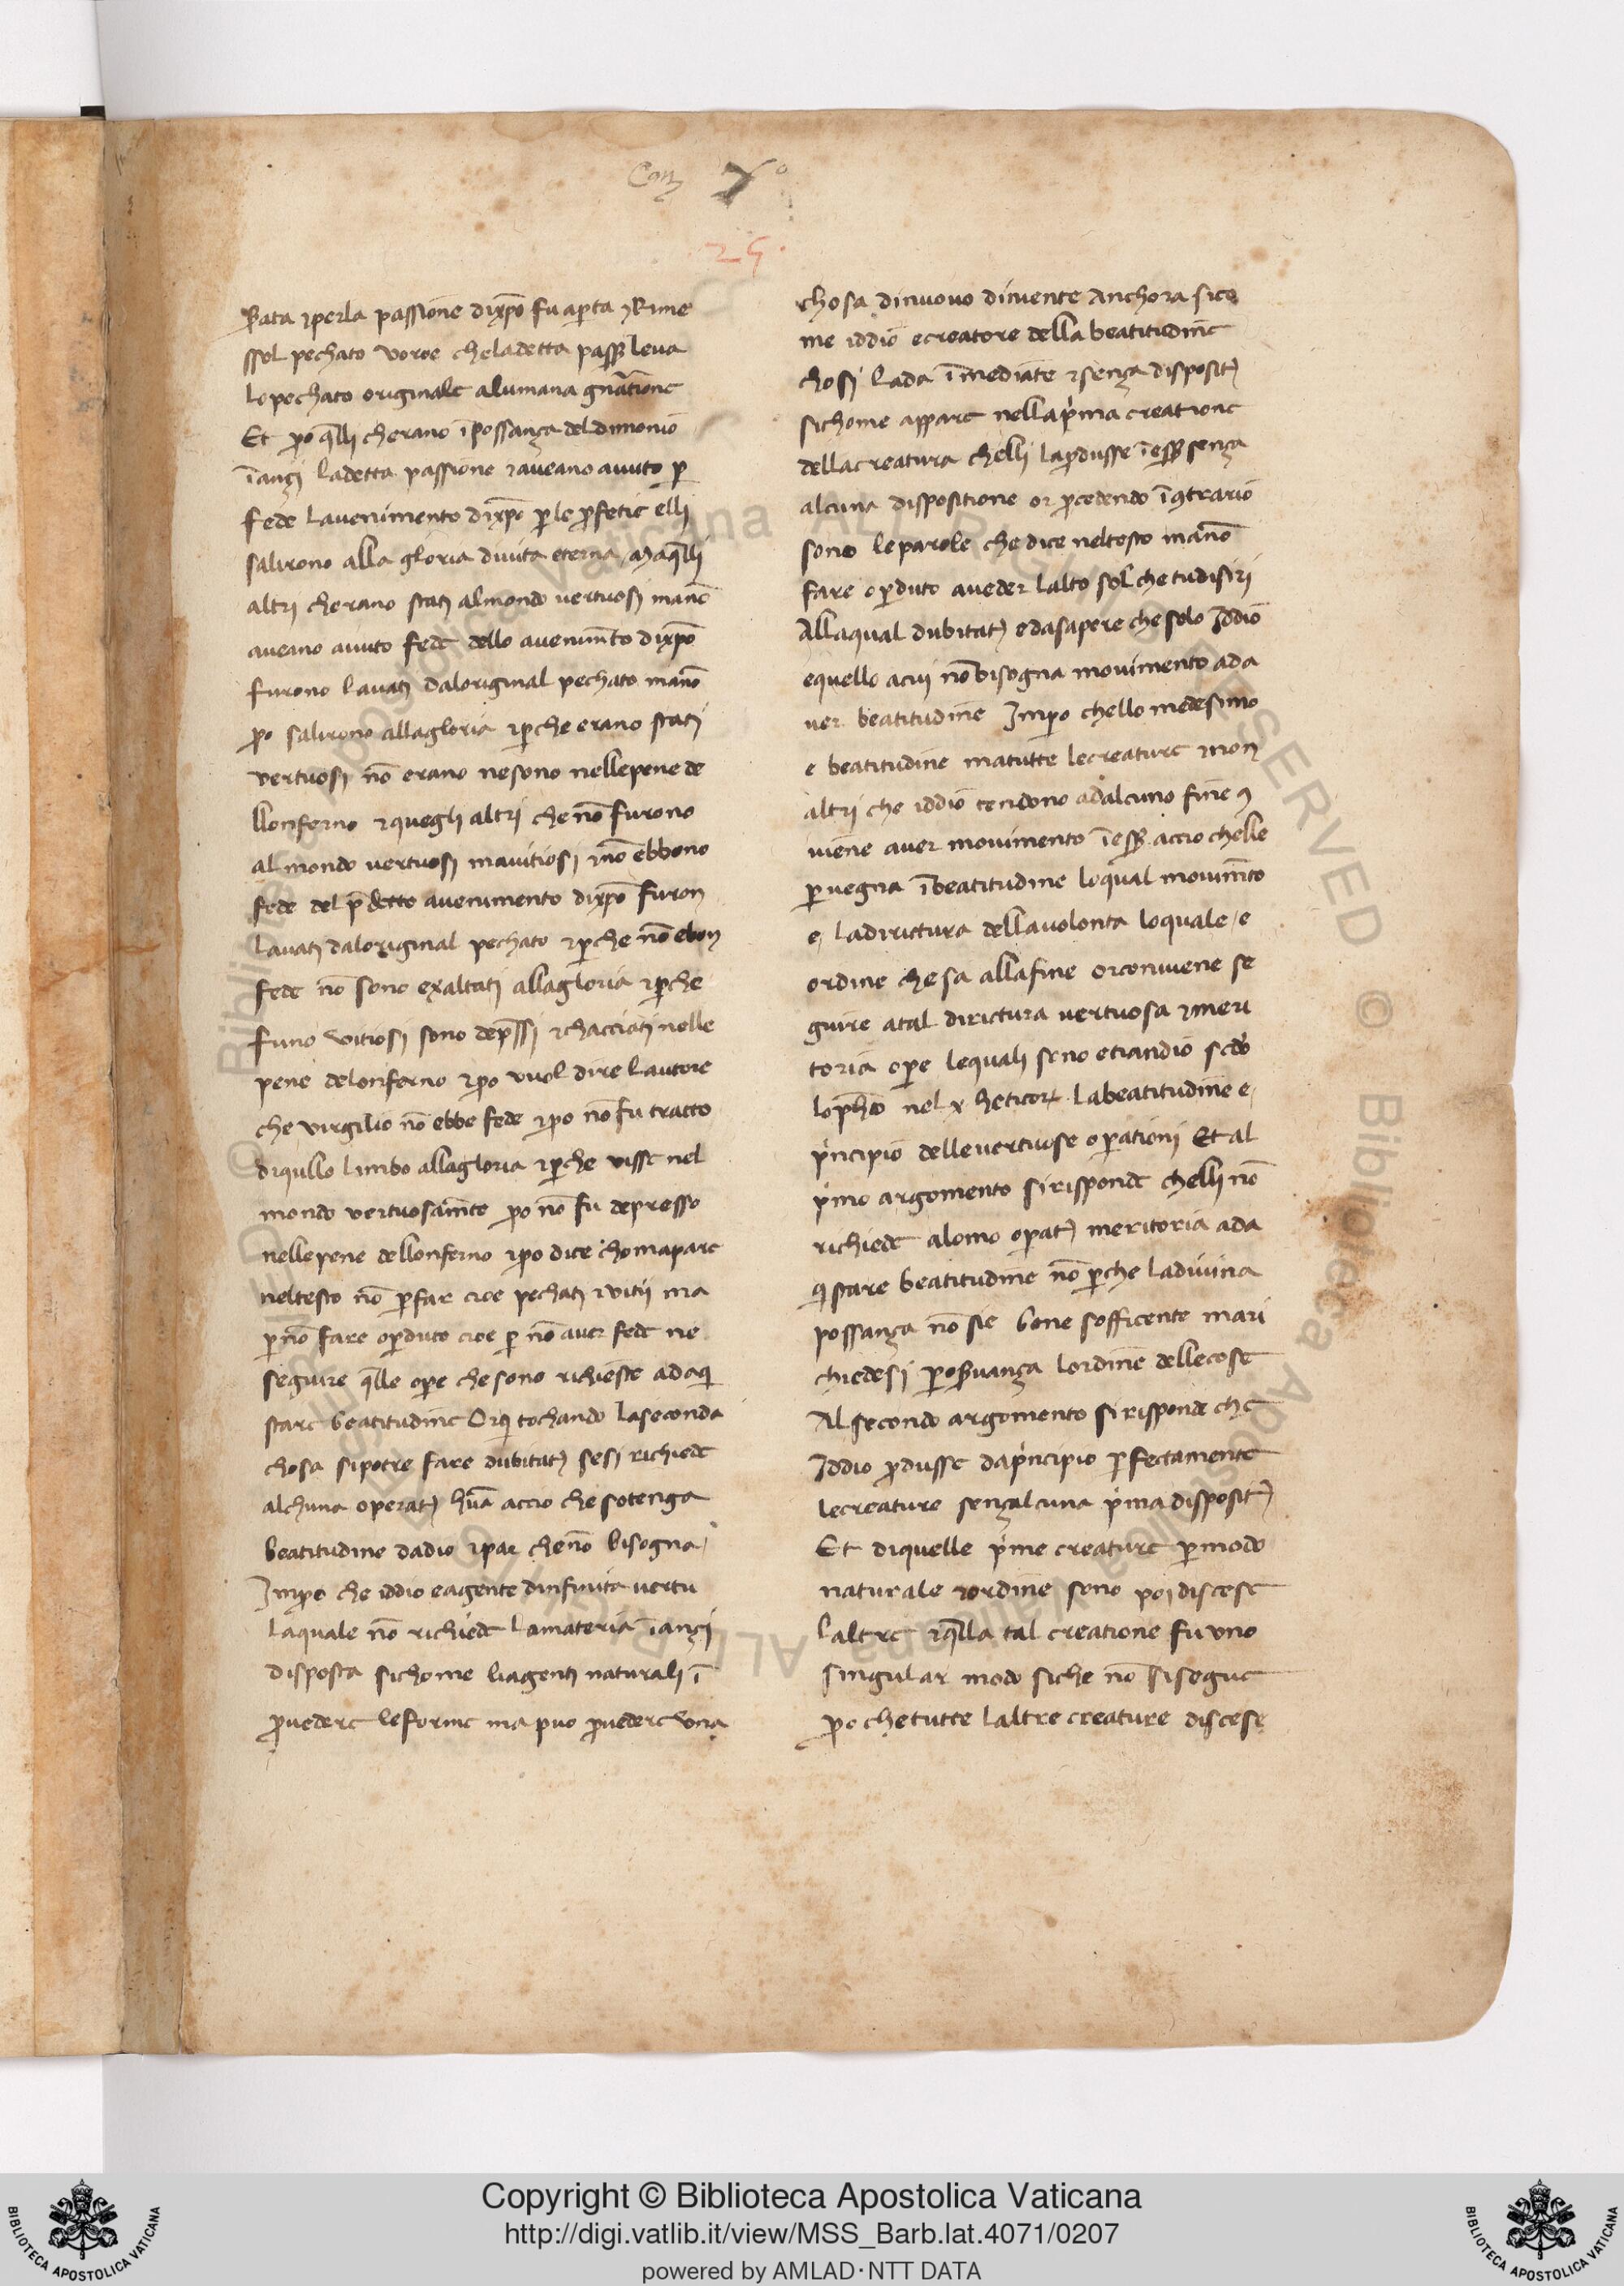 25
passione dixp̄o fu apta ⁊Rime
ssol pechato voroe cheladetta
lopechato originale alumana gn̄atione
Et po q̄lli cherano ī possanza del dimonio
īanzi ladetta passione ⁊aueano auuto p
fede lauenimento dixp̄o p le pfetie elli
salirono alla gloria diuita eterna Maq̄lli
altri cherano stati almondo uertuosi manō
aueano auuto fede dello auenimēto dixp̄o
furono lauati daloriginal pechato manō
po salirono allagloria ⁊pche erano stati
vertuosi nō erano nesono nellepene de
llonferno ⁊quegli altri che nō furono
al mondo uertuosi mauitiosi ⁊nō ebbono
fede del p̄detto auenimento dixp̄o furon
lauati daloriginal pechato ⁊pche nō ebon
fede nō sono exaltati allagloria ⁊pche
funo vitiosi sono dep̄ssi ⁊chacciati nelle
pene delonferno ⁊po vuol dire lautore
che virgilio nō ebbe fede ⁊po nō fu tratto
diqullo limbo allagloria ⁊pche visse nel
mondo vertuosamēte po nō fu depresso
nellepene dellonferno ⁊po dice chomapare
neltesto nō pfar cioe pechati ⁊vitii ma
pnō fare opduto cioe p nō auer fede ne
seguire q̄lle ope che sono richieste adaqi
stare beatitudine Orqi tochando laseconda
chosa sipotre fare dubitat⁊ sesi richiede
alchuna operat⁊ hūa accio che sotenga
beatitudine dadio ⁊par chenō bisogna
Impo che iddio eagente dinfinita uertu
laquale nō richiede lamateria īanzi
disposta sichome liagenti naturali ī
puedere leforme ma puo puedere vna
chosa dinuouo diuente Anchora sico
me iddio ecreatore della beatitudine
chosi lada īmediate ⁊senza disposit⁊
sichome appare nellapima creatione
dellacreatura chelli lapdusse senza
alcuna dispositione or pcedendo ī 9trario
sono leparole che dice neltesto manō
fare opduto aueder lalto sol che tudisiri
Allaqual dubitat⁊ edasapere che solo Iddio
equello acui nō bisogna mouimento ada
uer beatitudine Impo chello medesimo
e beatitudine matutte lecreature ⁊non
altri che iddio tendono adalcuno fine
auer mouimento accio chelle
puegna ībeatitudine loqual mouimēto
e ladirictura dellauolonta loquale e
ordine chesa allafine orconuiene se
guire atal dirictura uertuosa ⁊meri
toria ope lequali sono etiandio
nel x heticor labeatitudine e
pincipio delleuertuose opationi Et al
pimo argomento sirisponde chelli nō
richiede alomo opat⁊ meritoria ada
qistare beatitudine nō pche ladiuina
possanza nō sie bene sofficente mari
chiedesi lordine dellecose
Alsecondo argomento sirisponde che
Iddio pdusse dapincipio pfectamente
lecreature senzalcuna pima disposit⁊
Et diquelle pime creature pmodo
naturale ⁊ordine sono poi discese
laltre ⁊q̄lla tal creatione fu vno
singular modo siche nō sisegue
po chetutte laltre creature discese
Copyright © Biblioteca Apostolica Vaticana
http://digi.vatlib.it/view/MSS_Barb.lat.4071/0207
powered by AMLAD·NTT DATA